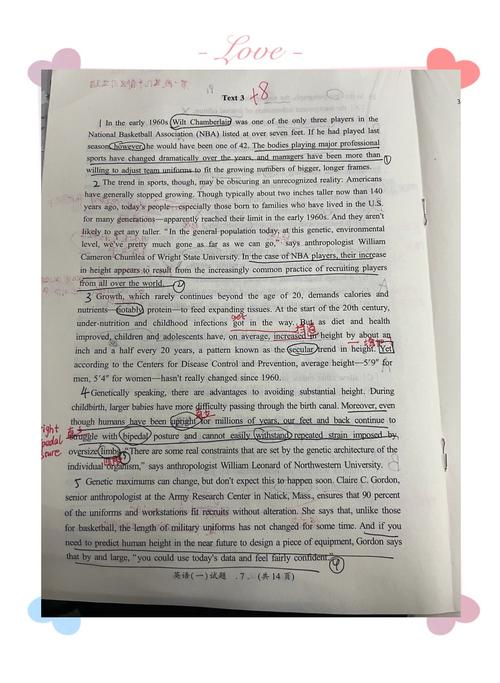 - Love -
Text 3 +8
1 In the early 1960s Wilt Chamberlain was one of the only three players in the
National Basketball Association (NBA) listed at over seven feet. If he had played last
season, however, he would have been one of 42. The bodies playing major professional
sports have changed dramatically over the years, and managers have been more than
willing to adjust team uniforms to fit the growing numbers of bigger, longer frames.
①
2 The trend in sports, though, may be obscuring an unrecognized reality: Americans
have generally stopped growing. Though typically about two inches taller now than 140
years ago, today's people—especially those born to families who have lived in the U.S.
for many generations—apparently reached their limit in the early 1960s. And they aren't
likely to get any taller. "In the general population today, at this genetic, environmental
level, we've pretty much gone as far as we can go," says anthropologist William
Cameron Chumlea of Wright State University. In the case of NBA players, their increase
in height appears to result from the increasingly common practice of recruiting players
from all over the world. ②
3 Growth, which rarely continues beyond the age of 20, demands calories and
nutrients—notably, protein—to feed expanding tissues. At the start of the 20th century,
under-nutrition and childhood infections got in the way. But as diet and health
get
improved, children and adolescents have, on average, increased in height by about an
inch and a half every 20 years, a pattern known as the secular trend in height. Yet
according to the Centers for Disease Control and Prevention, average height—5'9" for
men, 5'4" for women—hasn't really changed since 1960.
4 Genetically speaking, there are advantages to avoiding substantial height. During
childbirth, larger babies have more difficulty passing through the birth canal. Moreover, even
though humans have been upright for millions of years, our feet and back continue to
直立
struggle with bipedal posture and cannot easily withstand repeated strain imposed by
oversize limbs. "There are some real constraints that are set by the genetic architecture of the
individual organism," says anthropologist William Leonard of Northwestern University.
5 Genetic maximums can change, but don't expect this to happen soon. Claire C. Gordon,
senior anthropologist at the Army Research Center in Natick, Mass., ensures that 90 percent
of the uniforms and workstations fit recruits without alteration. She says that, unlike those
for basketball, the length of military uniforms has not changed for some time. And if you
need to predict human height in the near future to design a piece of equipment, Gordon says
that by and large, "you could use today's data and feel fairly confident." ④
英语(一)试题 . 7 . (共 14 页)